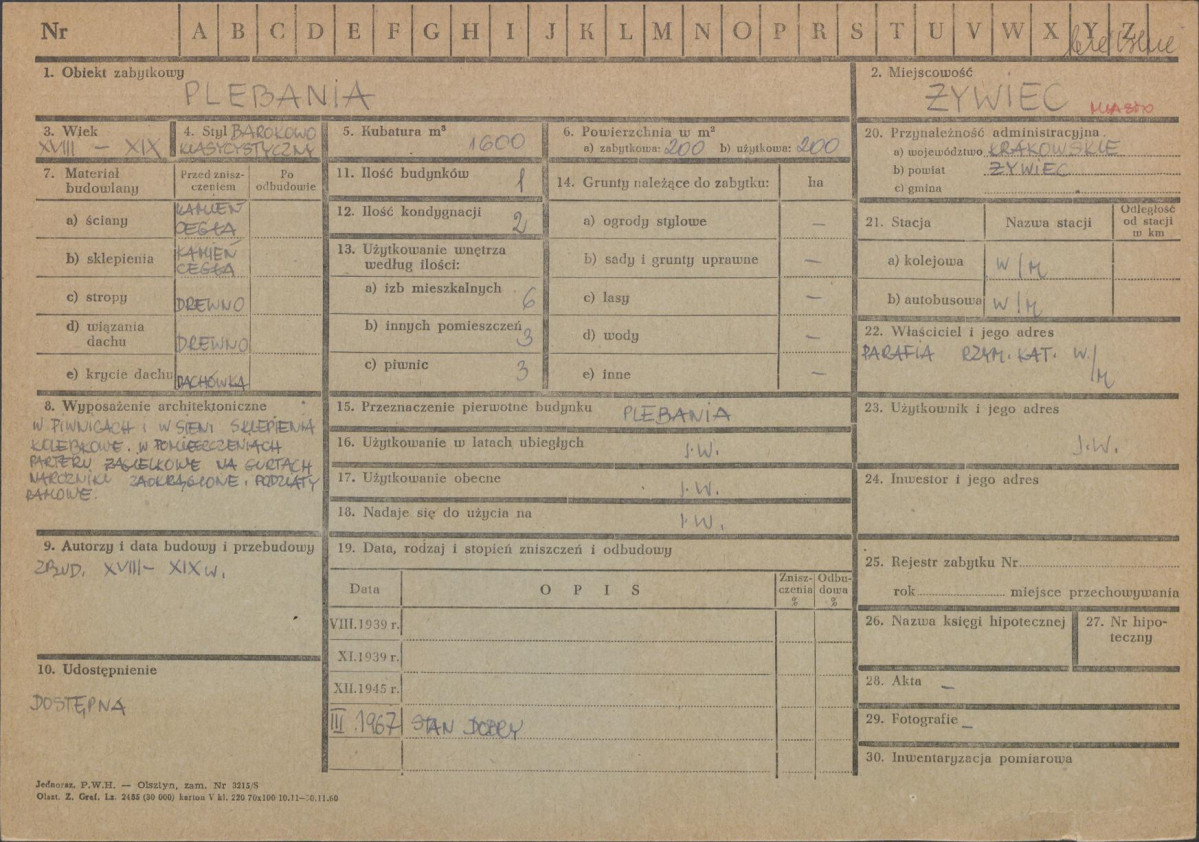 Nr A B C D E F G H I J K L M N O P R S T U V W X Y Z
1. Obiekt zabytkowy
PLEBANIA
2. Miejscowość
ŻYWIEC MIASTO
3. Wiek
XVIII – XIX
4. Styl BAROKOWO
KLASYCYSTYCZNY
5. Kubatura m³
1600
6. Powierzchnia w m²
a) zabytkowa: 200 b) użytkowa: 200
20. Przynależność administracyjna
a) województwo KRAKOWSKIE
b) powiat ŻYWIEC
c) gmina
7. Materiał
budowlany
Przed znisz-
czeniem
Po
odbudowie
a) ściany KAMIEŃ
CEGŁA
b) sklepienia KAMIEŃ
CEGŁA
c) stropy DREWNO
d) wiązania
dachu DREWNO
e) krycie dachu DACHÓWKA
11. Ilość budynków 1
12. Ilość kondygnacji 2
13. Użytkowanie wnętrza
według ilości:
a) izb mieszkalnych 6
b) innych pomieszczeń 3
c) piwnic 3
14. Grunty należące do zabytku: ha
a) ogrody stylowe —
b) sady i grunty uprawne —
c) lasy —
d) wody —
e) inne —
21. Stacja Nazwa stacji Odległość
od stacji
w km
a) kolejowa W/M
b) autobusowa W/M
22. Właściciel i jego adres
PARAFIA RZYM. KAT. W/M
8. Wyposażenie architektoniczne
W PIWNICACH I W SIENI SKLEPIENIA
KOLEBKOWE. W POMIESZCZENIACH
PARTERU ŻAGIELKOWE NA GURTACH
NAROŻNIKI ZAOKRĄGLONE. PODZIAŁY
RAMOWE.
15. Przeznaczenie pierwotne budynku PLEBANIA
16. Użytkowanie w latach ubiegłych J.W.
17. Użytkowanie obecne J.W.
18. Nadaje się do użycia na J.W.
23. Użytkownik i jego adres
J.W.
24. Inwestor i jego adres
9. Autorzy i data budowy i przebudowy
ZBUD. XVIII – XIX w.
19. Data, rodzaj i stopień zniszczeń i odbudowy
Data OPIS Znisz-
czenia
%
Odbu-
dowa
%
VIII.1939 r.
XI.1939 r.
XII.1945 r.
III.1967 STAN DOBRY
25. Rejestr zabytku Nr
rok miejsce przechowywania
26. Nazwa księgi hipotecznej
27. Nr hipo-
teczny
10. Udostępnienie
DOSTĘPNA
28. Akta —
29. Fotografie —
30. Inwentaryzacja pomiarowa
Jednoraz. P.W.H. — Olsztyn, zam. Nr 3215/S
Olszt. Z. Graf. Lz. 2486 (30 000) karton V kl. 220 70x100